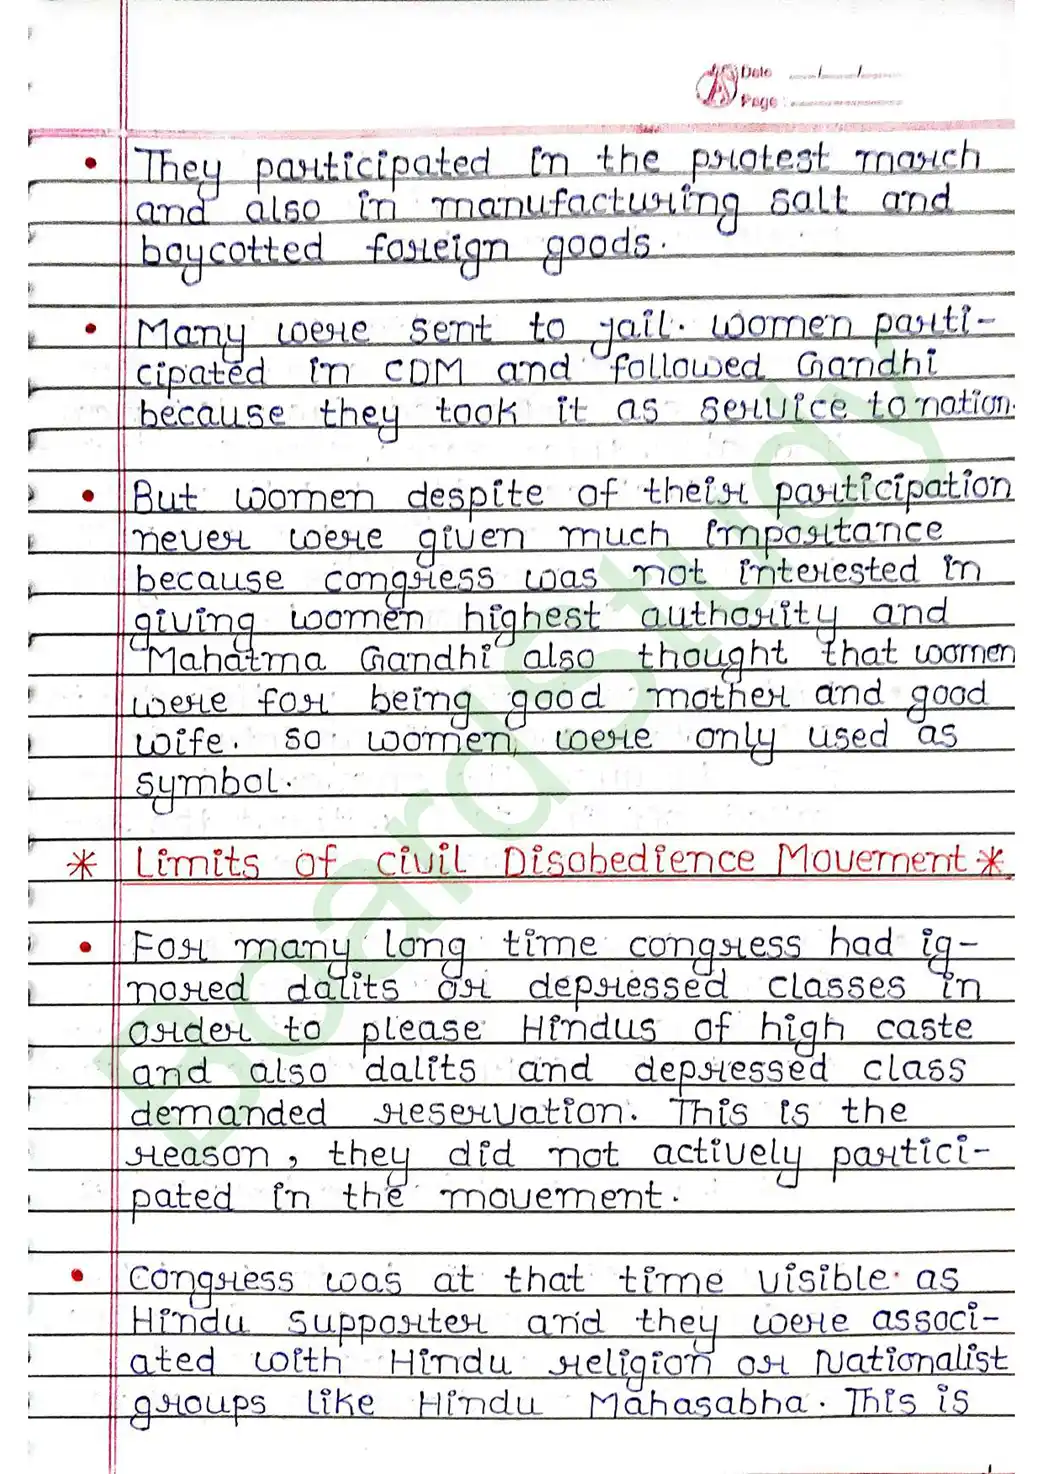 Date
Page
They participated in the protest march
and also in manufacturing salt and
boycotted foreign goods.
Many were sent to jail. women parti-
cipated in CDM and followed Gandhi
because they took it as service to nation.
But women despite of their participation
never were given much importance
because congress was not interested in
giving women highest authority and
Mahatma Gandhi also thought that women
were for being good mother and good
wife. so women, were only used as
symbol.
* Limits of civil Disobedience Movement *
For many long time congress had ig-
nored dalits or depressed classes in
order to please Hindus of high caste
and also dalits and depressed class
demanded reservation. This is the
reason, they did not actively partici-
pated in the movement.
Congress was at that time visible as
Hindu supporter and they were associ-
ated with Hindu religion or Nationalist
groups like Hindu Mahasabha. This is
BoardStudy